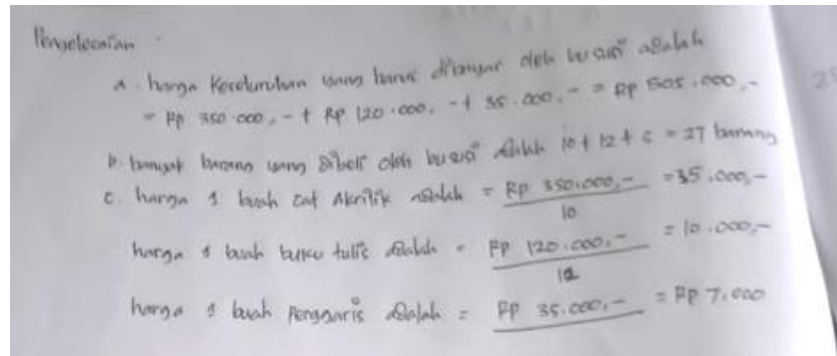 Penyelesaian
a. harga keseluruhan yang harus dibayar oleh bu aini adalah
= Rp 350.000,- + Rp 120.000,- + 35.000,- = Rp 505.000,-
b. banyak barang yang dibeli oleh bu aini adalah 10 + 12 + 5 = 27 barang
c. harga 1 buah cat Akrilik adalah = Rp 350.000,- = 35.000,-
10
harga 1 buah buku tulis adalah = Rp 120.000,- = 10.000,-
12
harga 1 buah Penggaris adalah = Rp 35.000,- = Rp 7.000